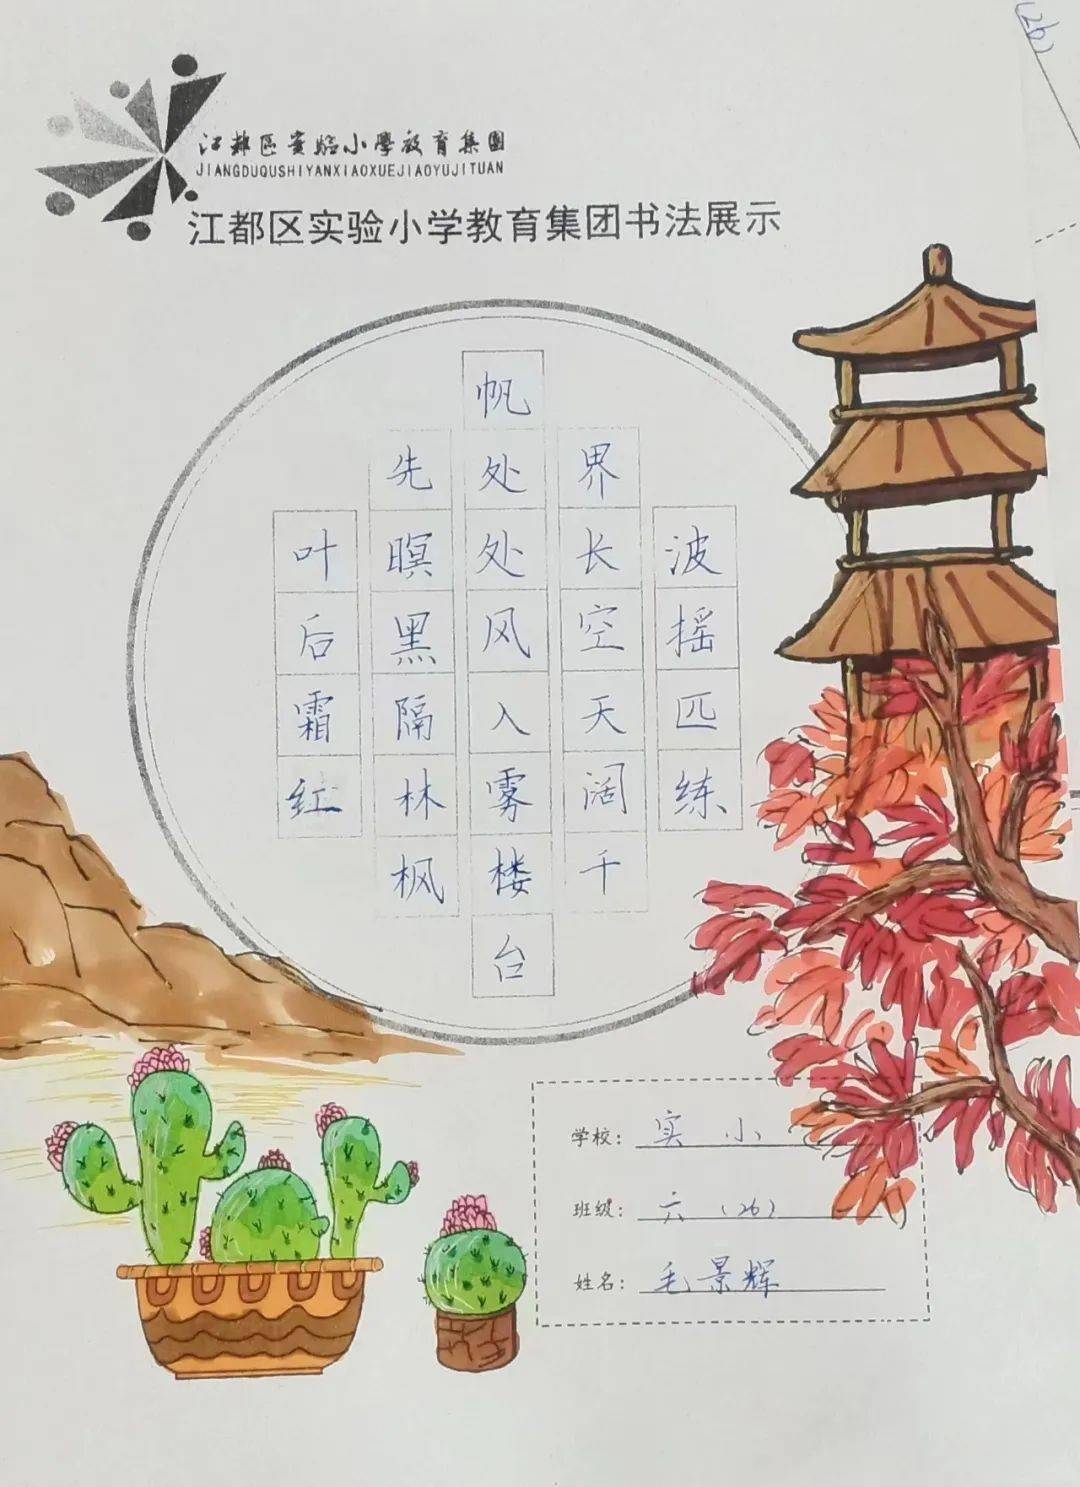 (26)
江都區實驗小學教育集團
JIANGDUQUSHIYANXIAOXUEJIAOYUJITUAN
江都区实验小学教育集团书法展示
波摇匹练
界长空天阔千
帆处处风入雾楼台
先暝黑隔林枫
叶后霜红
学校：实小
班级：六（26）
姓名：毛景辉